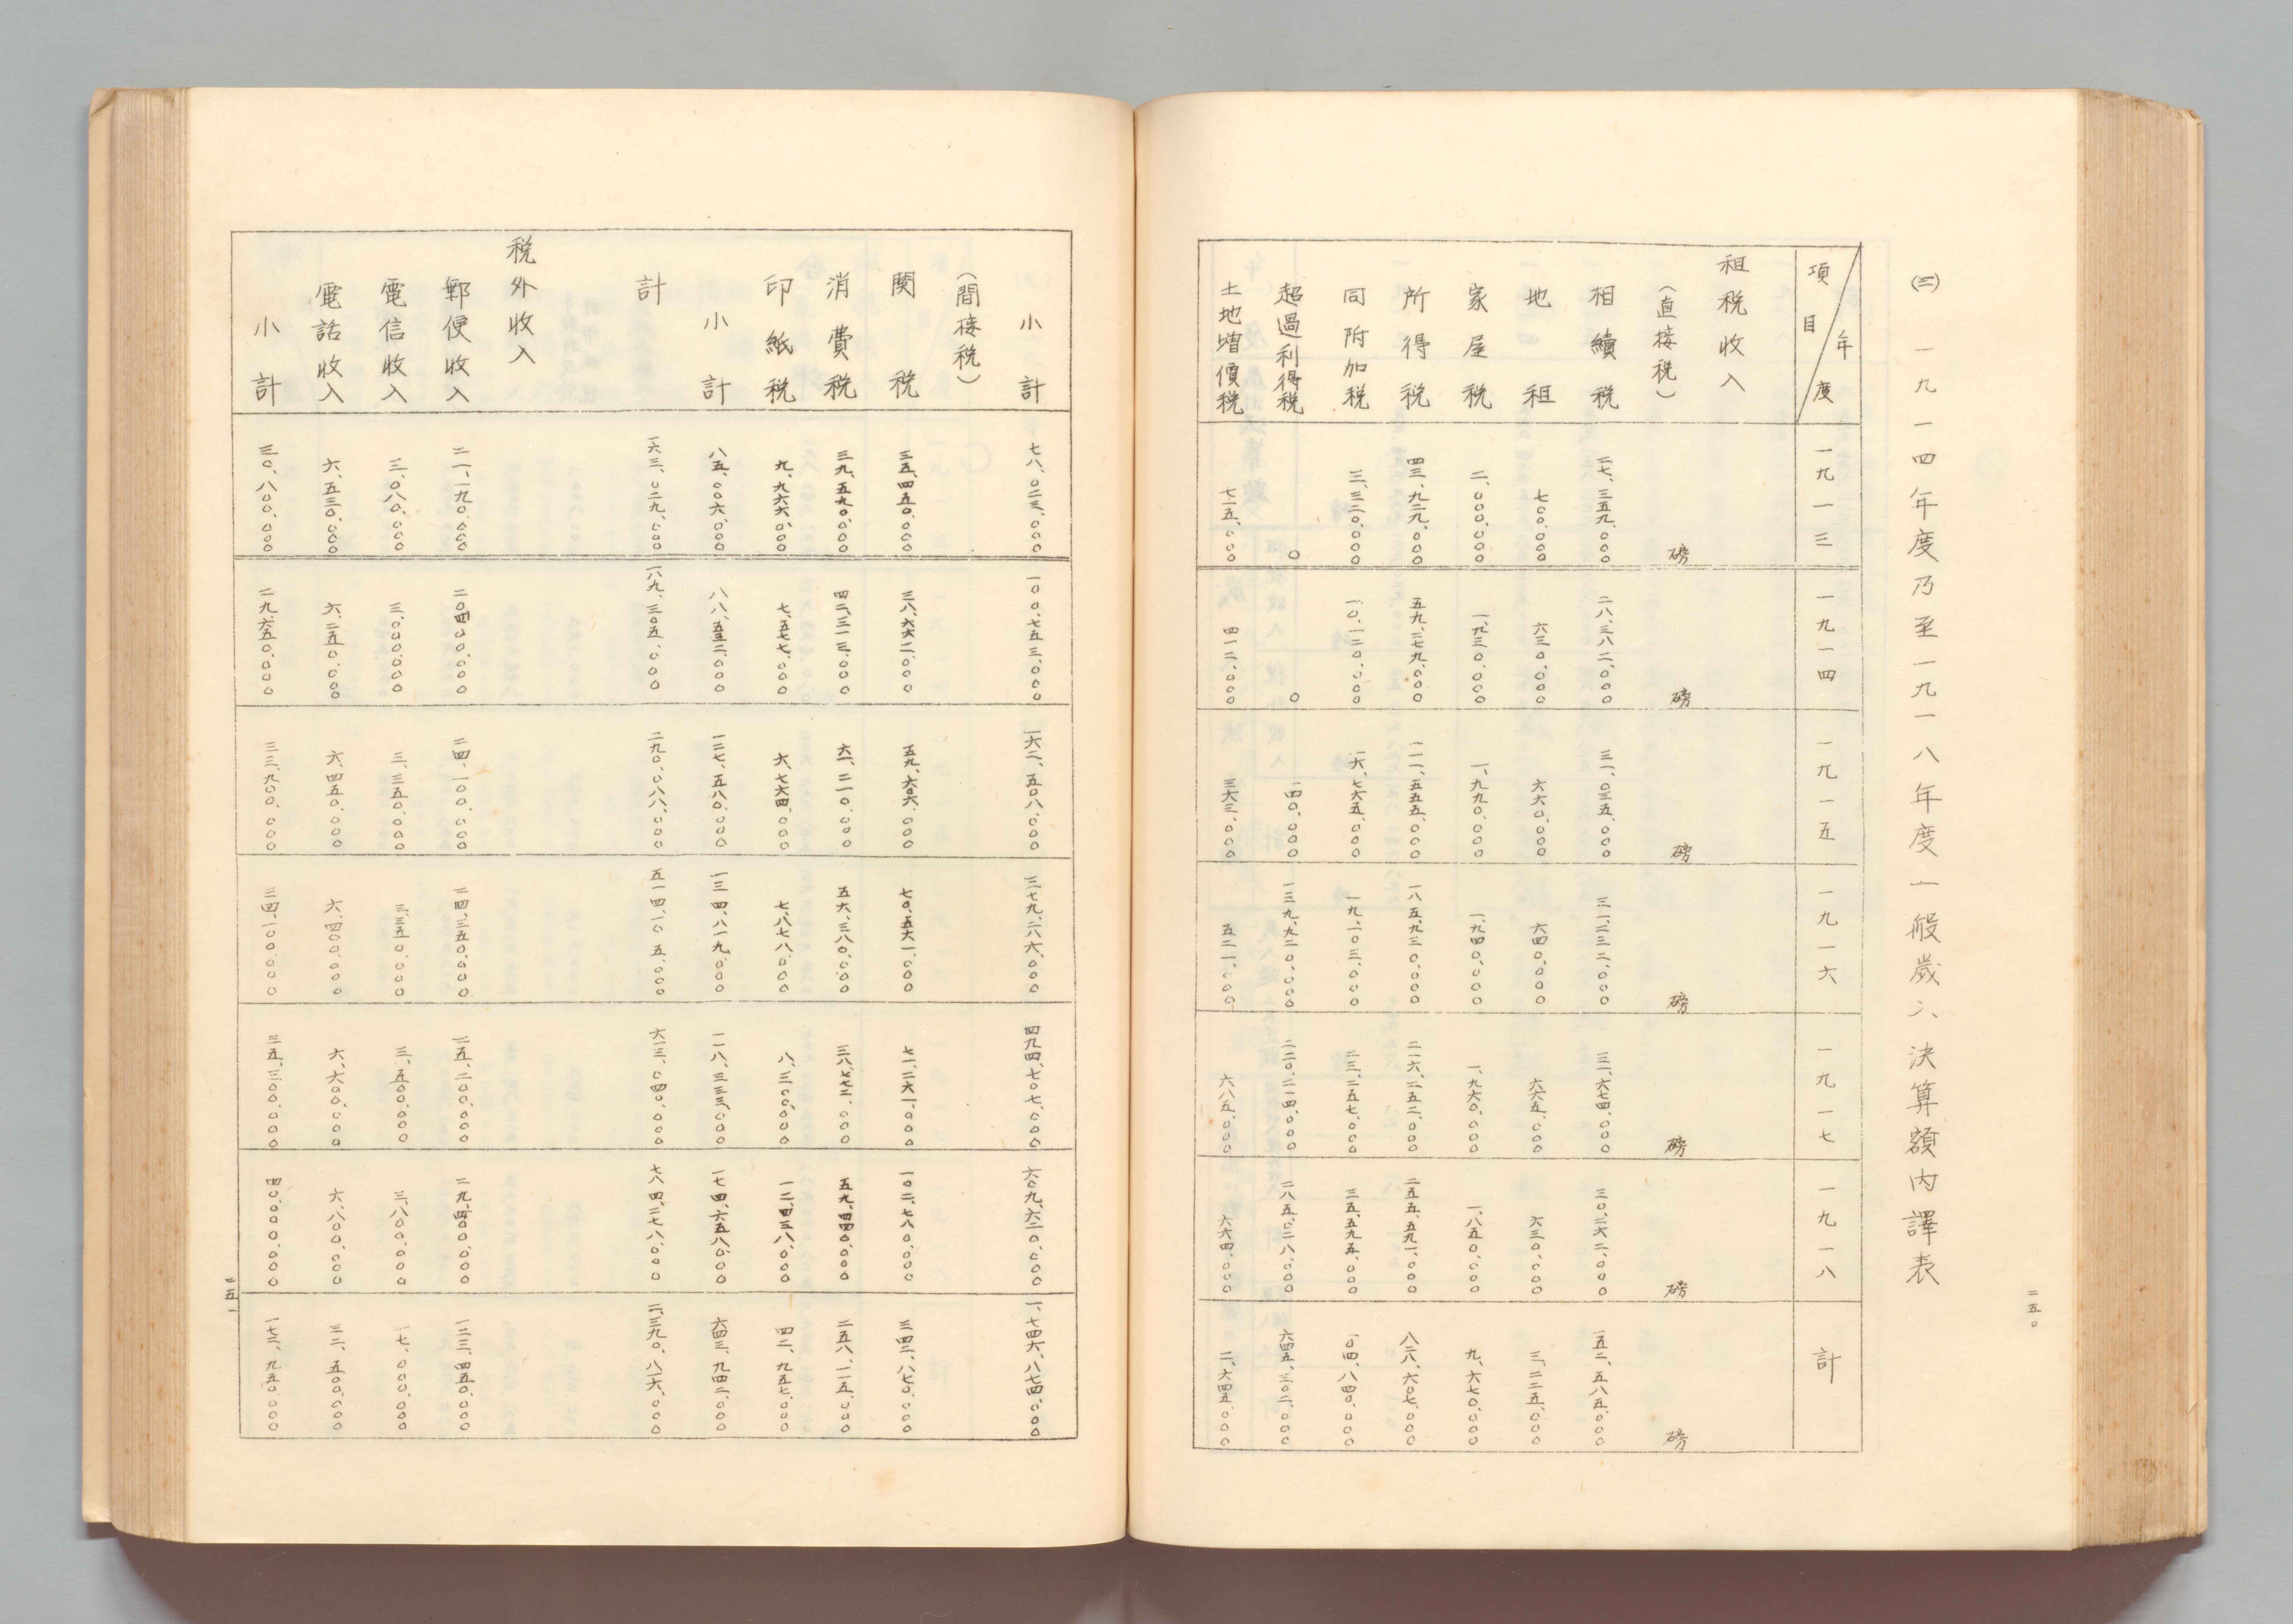 二五〇
(三) 一九一四年度乃至一九一八年度一般歳入決算額内譯表
項目 年度 一九一三 一九一四 一九一五 一九一六 一九一七 一九一八 計
租税收入
(直接税) 磅 磅 磅 磅 磅 磅 磅
相續税 二七、三五九、〇〇〇 二八、三八二、〇〇〇 三一、〇三五、〇〇〇 三一、二三二、〇〇〇 三一、六七四、〇〇〇 三〇、二六二、〇〇〇 一五二、五八五、〇〇〇
地租 七〇〇、〇〇〇 六三〇、〇〇〇 六六〇、〇〇〇 六四〇、〇〇〇 六六五、〇〇〇 六三〇、〇〇〇 三、二二五、〇〇〇
家屋税 二、〇〇〇、〇〇〇 一、九三〇、〇〇〇 一、九九〇、〇〇〇 一、九四〇、〇〇〇 一、九六〇、〇〇〇 一、八五〇、〇〇〇 九、六七〇、〇〇〇
所得税 四三、九二九、〇〇〇 五九、二七九、〇〇〇 一一一、五五五、〇〇〇 一八五、九三〇、〇〇〇 二一六、二五二、〇〇〇 二五五、五九一、〇〇〇 八二八、六〇七、〇〇〇
同附加税 三、三二〇、〇〇〇 一〇、一二〇、〇〇〇 一六、七六五、〇〇〇 一九、一〇三、〇〇〇 二三、二五七、〇〇〇 三五、五九五、〇〇〇 一〇四、八四〇、〇〇〇
超過利得税 〇 〇 一四〇、〇〇〇 一三九、九二〇、〇〇〇 二二〇、二一四、〇〇〇 二八五、〇二八、〇〇〇 六四五、三〇二、〇〇〇
土地増價税 七一五、〇〇〇 四一二、〇〇〇 三六三、〇〇〇 五二一、〇〇〇 六八五、〇〇〇 六六四、〇〇〇 二、六四五、〇〇〇
小計 七八、〇二三、〇〇〇 一〇〇、七五三、〇〇〇 一六二、五〇八、〇〇〇 三七九、二八六、〇〇〇 四九四、七〇七、〇〇〇 六〇九、六二〇、〇〇〇 一、七四六、八七四、〇〇〇
(間接税)
関税 三五、四五〇、〇〇〇 三八、六六二、〇〇〇 五九、六〇六、〇〇〇 七〇、五六一、〇〇〇 七一、二六一、〇〇〇 一〇二、七八〇、〇〇〇 三四二、八七〇、〇〇〇
消費税 三九、五九〇、〇〇〇 四二、三一三、〇〇〇 六一、二一〇、〇〇〇 五六、三八〇、〇〇〇 三八、七七二、〇〇〇 五九、四四〇、〇〇〇 二五八、一一五、〇〇〇
印紙税 九、九六六、〇〇〇 七、五七七、〇〇〇 六、七六四、〇〇〇 七、八七八、〇〇〇 八、三〇〇、〇〇〇 一二、四三八、〇〇〇 四二、九五七、〇〇〇
小計 八五、〇〇六、〇〇〇 八八、五五二、〇〇〇 一二七、五八〇、〇〇〇 一三四、八一九、〇〇〇 一一八、三三三、〇〇〇 一七四、六五八、〇〇〇 六四三、九四二、〇〇〇
計 一六三、〇二九、〇〇〇 一八九、三〇五、〇〇〇 二九〇、〇八八、〇〇〇 五一四、一〇五、〇〇〇 六一三、〇四〇、〇〇〇 七八四、二七八、〇〇〇 二、三九〇、八一六、〇〇〇
税外收入
郵便收入 二一、一九〇、〇〇〇 二〇、四〇〇、〇〇〇 二四、一〇〇、〇〇〇 二四、三五〇、〇〇〇 二五、二〇〇、〇〇〇 二九、四〇〇、〇〇〇 一二三、四五〇、〇〇〇
電信收入 三、〇八〇、〇〇〇 三、〇〇〇、〇〇〇 三、三五〇、〇〇〇 三、三五〇、〇〇〇 三、五〇〇、〇〇〇 三、八〇〇、〇〇〇 一七、〇〇〇、〇〇〇
電話收入 六、五三〇、〇〇〇 六、二五〇、〇〇〇 六、四五〇、〇〇〇 六、四〇〇、〇〇〇 六、六〇〇、〇〇〇 六、八〇〇、〇〇〇 三二、五〇〇、〇〇〇
小計 三〇、八〇〇、〇〇〇 二九、六五〇、〇〇〇 三三、九〇〇、〇〇〇 三四、一〇〇、〇〇〇 三五、三〇〇、〇〇〇 四〇、〇〇〇、〇〇〇 一七二、九五〇、〇〇〇
二五一